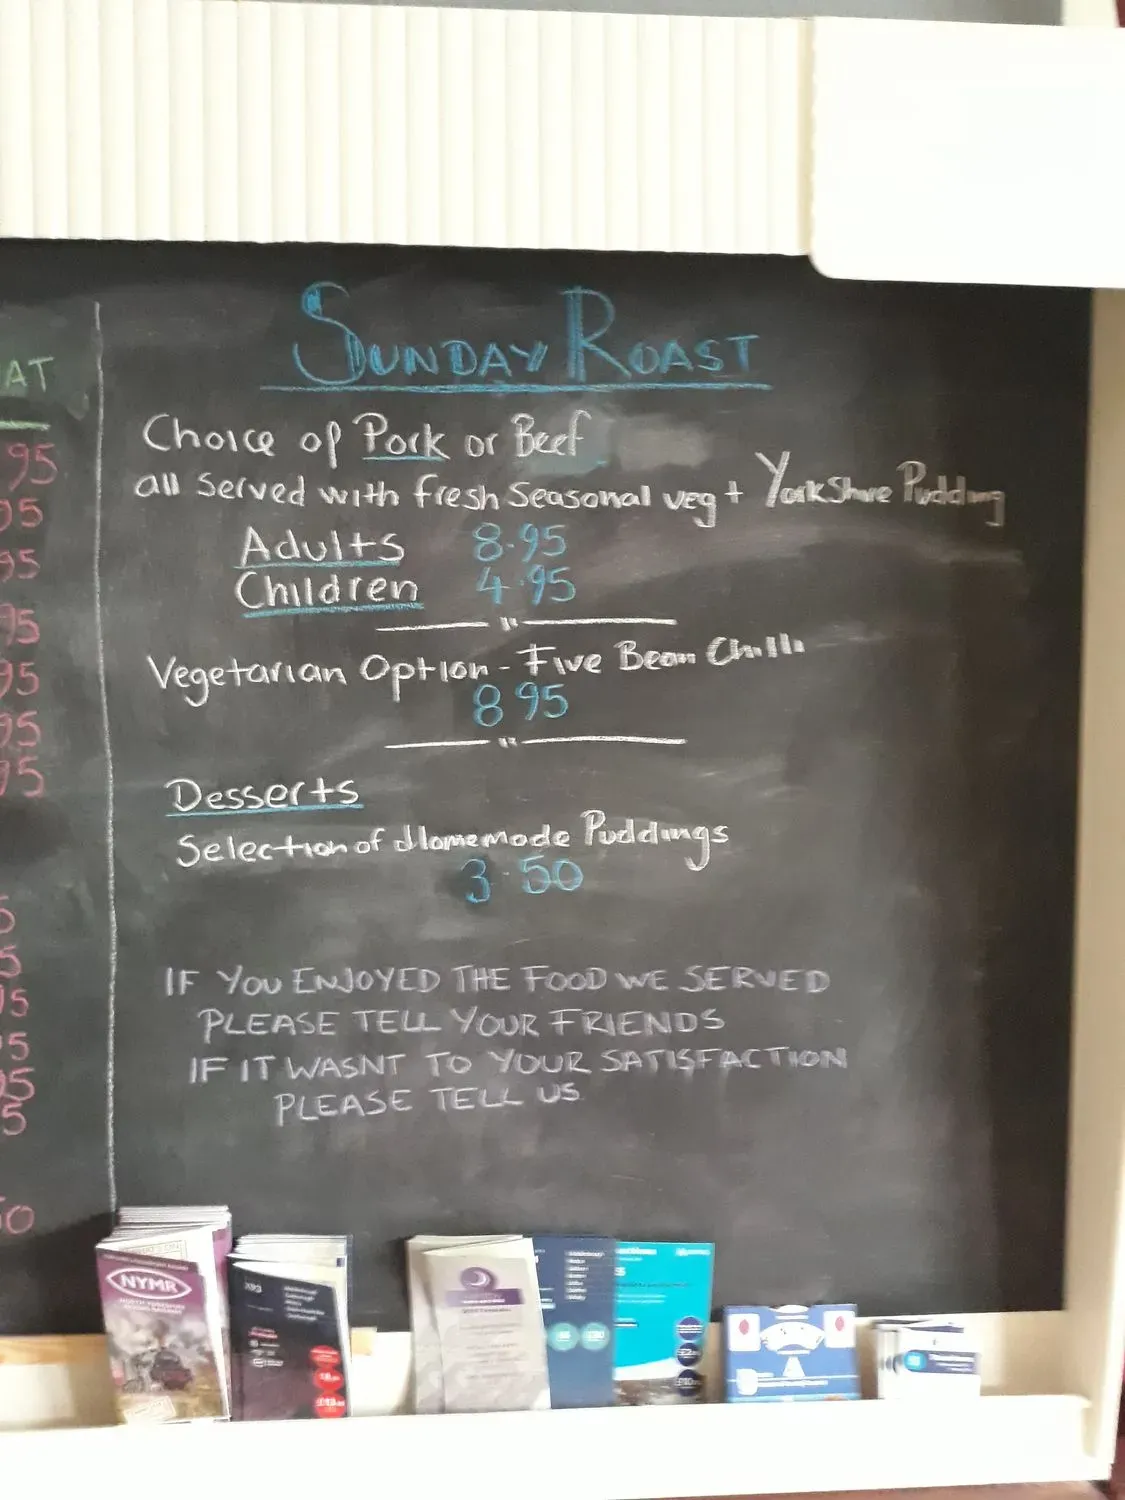 AT
95
95
95
95
95
95
95
SUNDAY ROAST
Choice of Pork or Beef
all Served with fresh Seasonal veg + Yorkshire Pudding
Adults 8.95
Children 4.95
Vegetarian Option - Five Bean Chilli
8 95
Desserts
Selection of Homemade Puddings
3.50
IF YOU ENJOYED THE FOOD WE SERVED
PLEASE TELL YOUR FRIENDS
IF IT WASNT TO YOUR SATISFACTION
PLEASE TELL US
5
5
95
5
95
5
50
NYMR
X93